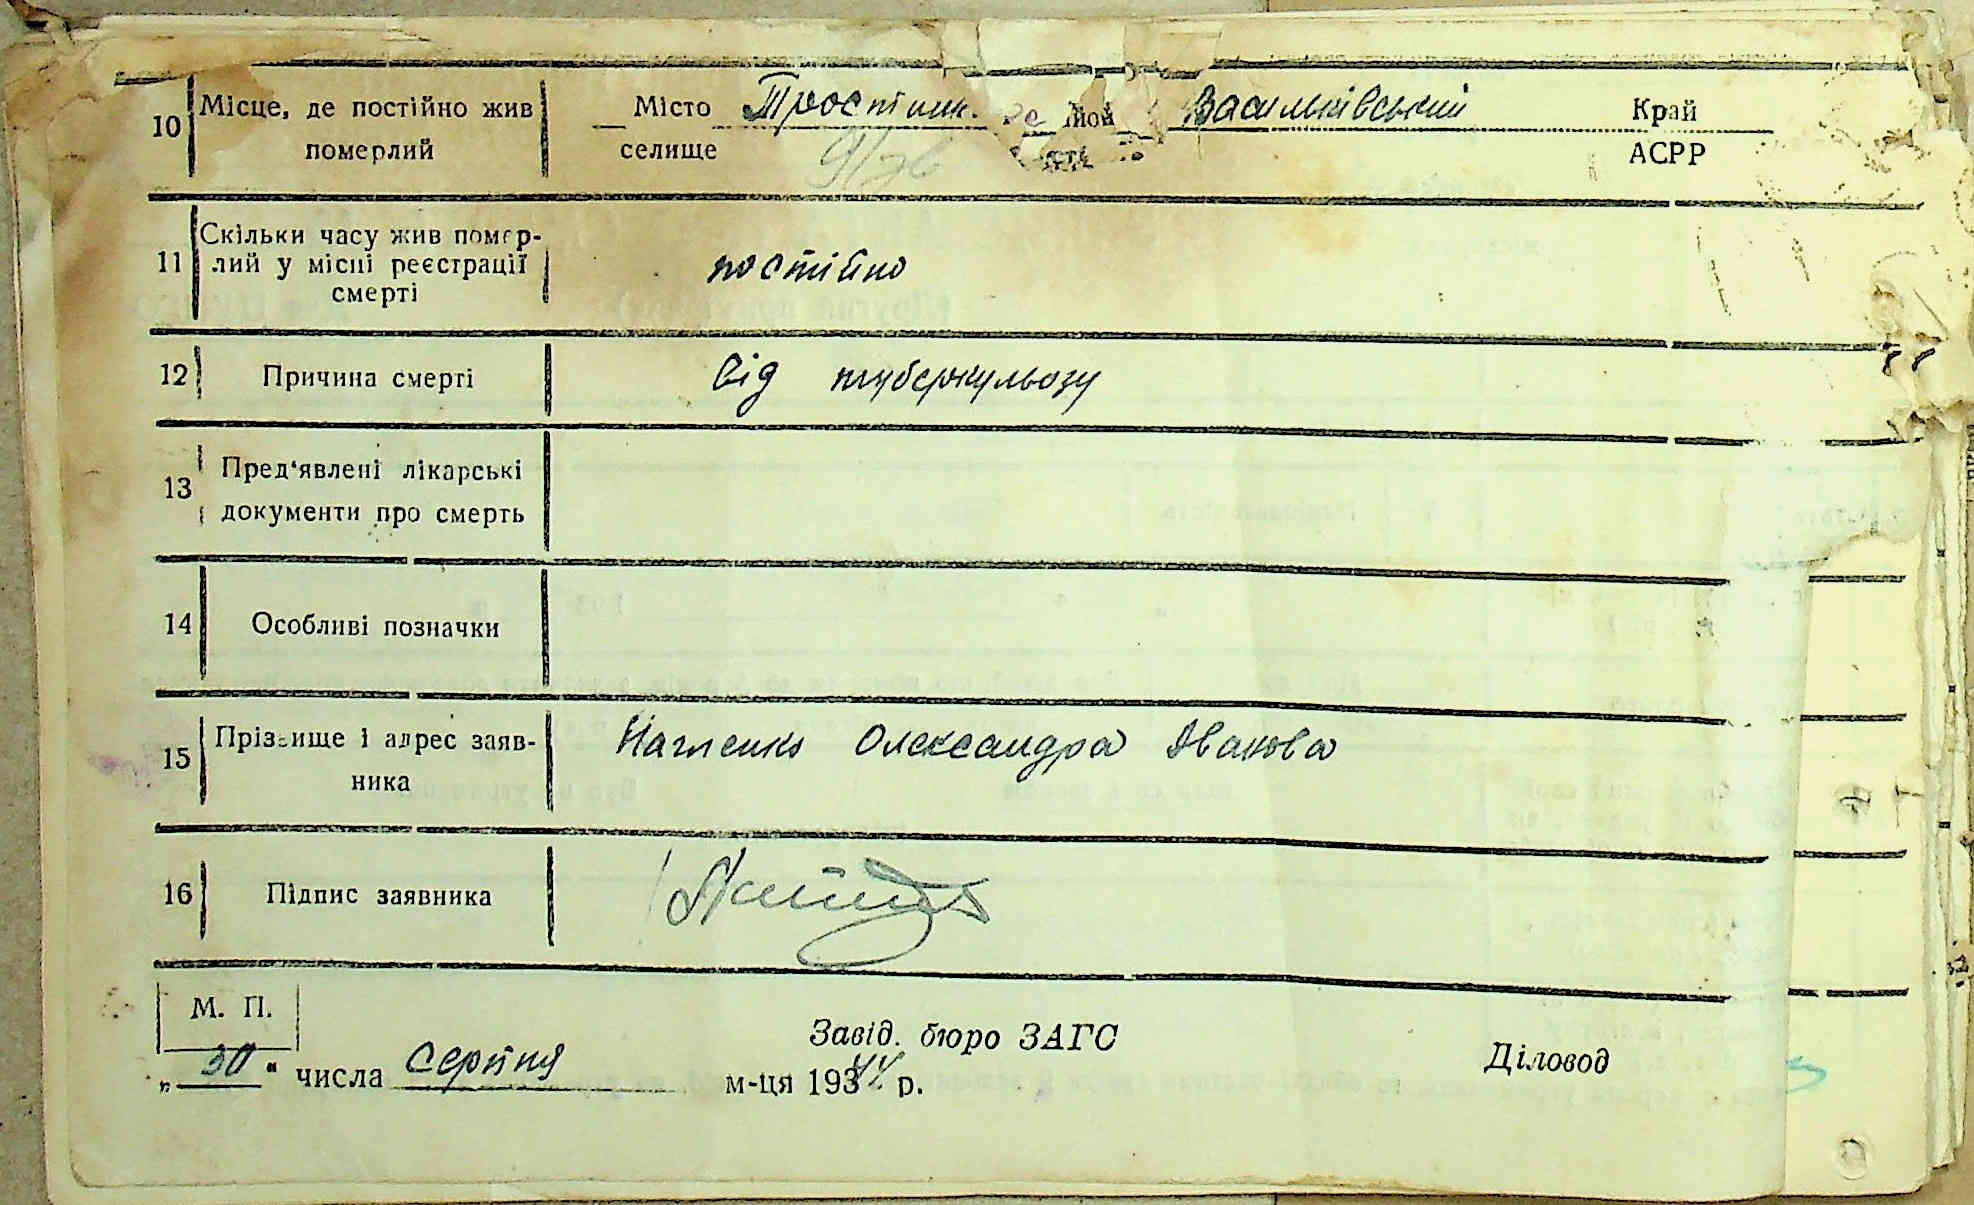 10 Місце, де постійно жив Місто Васильківський Край
померлий селище АСРР
11 Скільки часу жив помер-
лий у місці реєстрації постійно
смерті
12 Причина смерті від туберкульозу
13 Пред'явлені лікарські
документи про смерть
14 Особливі позначки
15 Прізвище і адрес заяв- Олександра Іванова
ника
16 Підпис заявника
М. П.
Завід. бюро ЗАГС
Діловод
„30“ числа серпня м-ця 19344 р.